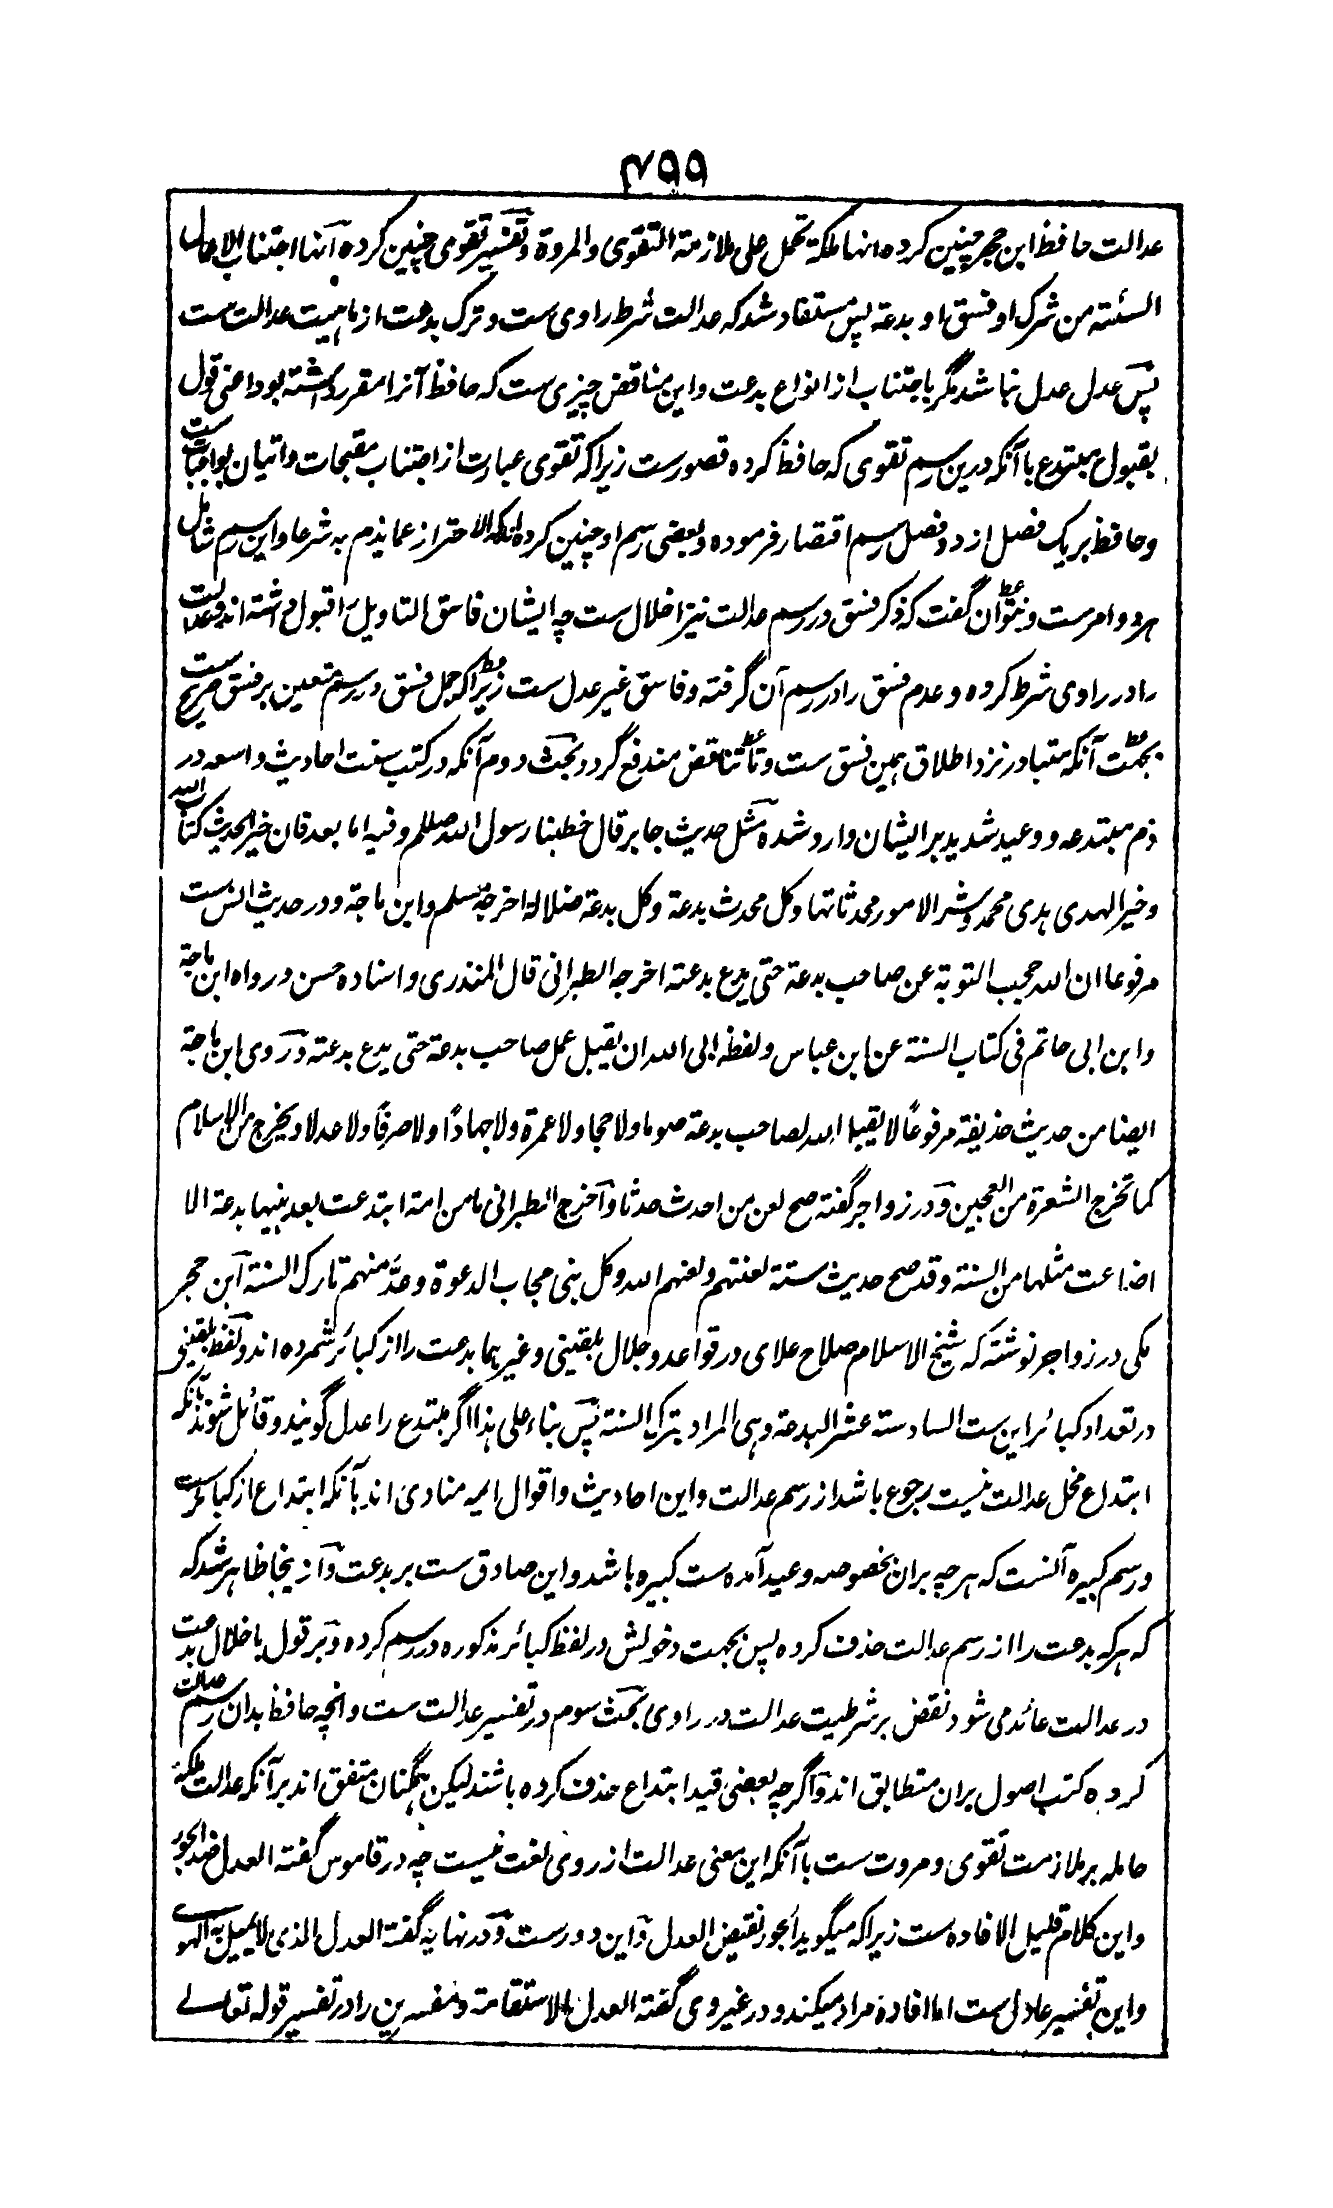 ۷۹۹
عدالت حافظ ابن حجر چنین کرده انها ملکة تحمل علی ملازمة التقوی والمروة و تفسیر تقوی چنین کرده انها اجتناب الاعمال
السیئة من شرک او فسق او بدعة پس مستفاد شد که عدالت شرط راوی ست و ترک بدعت از ماهیت عدالت ست
پس عدل عدل نباشد مگر باجتناب از انواع بدعت و این مناقض چیزی ست که حافظ آنرا مقرر داشته بود اعنی قول
بقبول مبتدع با آنکه درین رسم تقوی که حافظ کرده قصورست زیراکه تقوی عبارت از اجتناب مقبحات و اتیان بواجبات ست
و حافظ بریک فصل از دو فصل رسم اقتصار فرموده و بعضی رسم او چنین کرده انها الاحتراز عما یذم به شرعا و این رسم شامل
هر دو امرست و نتوان گفت که ذکر فسق در رسم عدالت نیز اخلال ست چه ایشان فاسق التاویل را قبول داشته اند و عدالت
را در راوی شرط کرده و عدم فسق را در رسم آن گرفته و فاسق غیر عدل ست زیراکه حمل فسق در رسم متعین بر فسق صریح ست
بجهت آنکه متبادر نزد اطلاق همین فسق ست و تا تناقض مندفع گردد بحث دوم آنکه در کتب سنت احادیث واسعه در
ذم مبتدعه و وعید شدید بر ایشان وارد شده مثل حدیث جابر قال خطبنا رسول الله صللم وفیه اما بعد فان خیر الحدیث کتاب الله
وخیر الهدی هدی محمد وشر الامور محدثاتها وکل محدث بدعة وکل بدعة ضلالة اخرجه مسلم وابن ماجة ودر حدیث انس ست
مرفوعا ان الله حجب التوبة عن صاحب بدعة حتی یدع بدعته اخرجه الطبرانی قال المنذری و اسناده حسن و رواه ابن ماجة
وابن ابی حاتم فی کتاب السنة عن ابن عباس ولفظه ابی الله ان یقبل عمل صاحب بدعة حتی یدع بدعته و روی ابن ماجة
ایضا من حدیث حذیفة مرفوعاً لا یقبل الله لصاحب بدعة صوما ولا حجا ولا عمرة ولا جهاداً ولا صرفاً ولا عدلا ویخرج من الاسلام
کما تخرج الشعرة من العجین و در زواجر گفته صح لعن من احدث حدثا و اخرج الطبرانی ما من امة ابتدعت بعد نبیها بدعة الا
اضاعت مثلها من السنة وقد صح حدیث ستة لعنتهم ولعنهم الله وکل نبی مجاب الدعوة وعدّ منهم تارک السنة ابن حجر
مکی در زواجر نوشته که شیخ الاسلام صلاح علای در قواعد و جلال بلقینی و غیرهما بدعت را از کبائر شمرده اند و لفظ بلقینی
در تعداد کبائر این ست السادسة عشر البدعة وهی المراد بترک السنة پس بناء علی هذا اگر مبتدع را عدل گویند و قائل شوند بآنکه
ابتداع مخل عدالت نیست رجوع باشد از رسم عدالت و این احادیث و اقوال ایمه منادی اند بآنکه ابتداع از کبائرست
و رسم کبیره آنست که هر چه بران بخصوصه وعید آمده ست کبیره باشد و این صادق ست بر بدعت و از ینجا ظاهر شد که
که هرکه بدعت را از رسم عدالت حذف کرده پس بجهت دخولش در لفظ کبائر مذکوره در رسم کرده و بر قول باخلال بدعت
در عدالت عائد می شود نقض بر شرطیت عدالت در راوی بحث سوم در تفسیر عدالت ست و انچه حافظ بدان رسم عدالت
کرده کتب اصول بران متطابق اند و اگرچه بعضی قید ابتداع حذف کرده باشند لیکن همگنان متفق اند بر آنکه عدالت ملکهٔ
حامله بر ملازمت تقوی و مروت ست با آنکه این معنی عدالت از روی لغت نیست چه در قاموس گفته العدل ضد الجور
و این کلام قلیل الافاده ست زیراکه میگوید الجور نقیض العدل و این دورست و در نهایه گفته العدل الذی لا یمیل به الهوی
و این تفسیر عادل ست اما افاده مراد میکند و در غیر وی گفته العدل الاستقامة و مفسرین را در تفسیر قوله تعالی